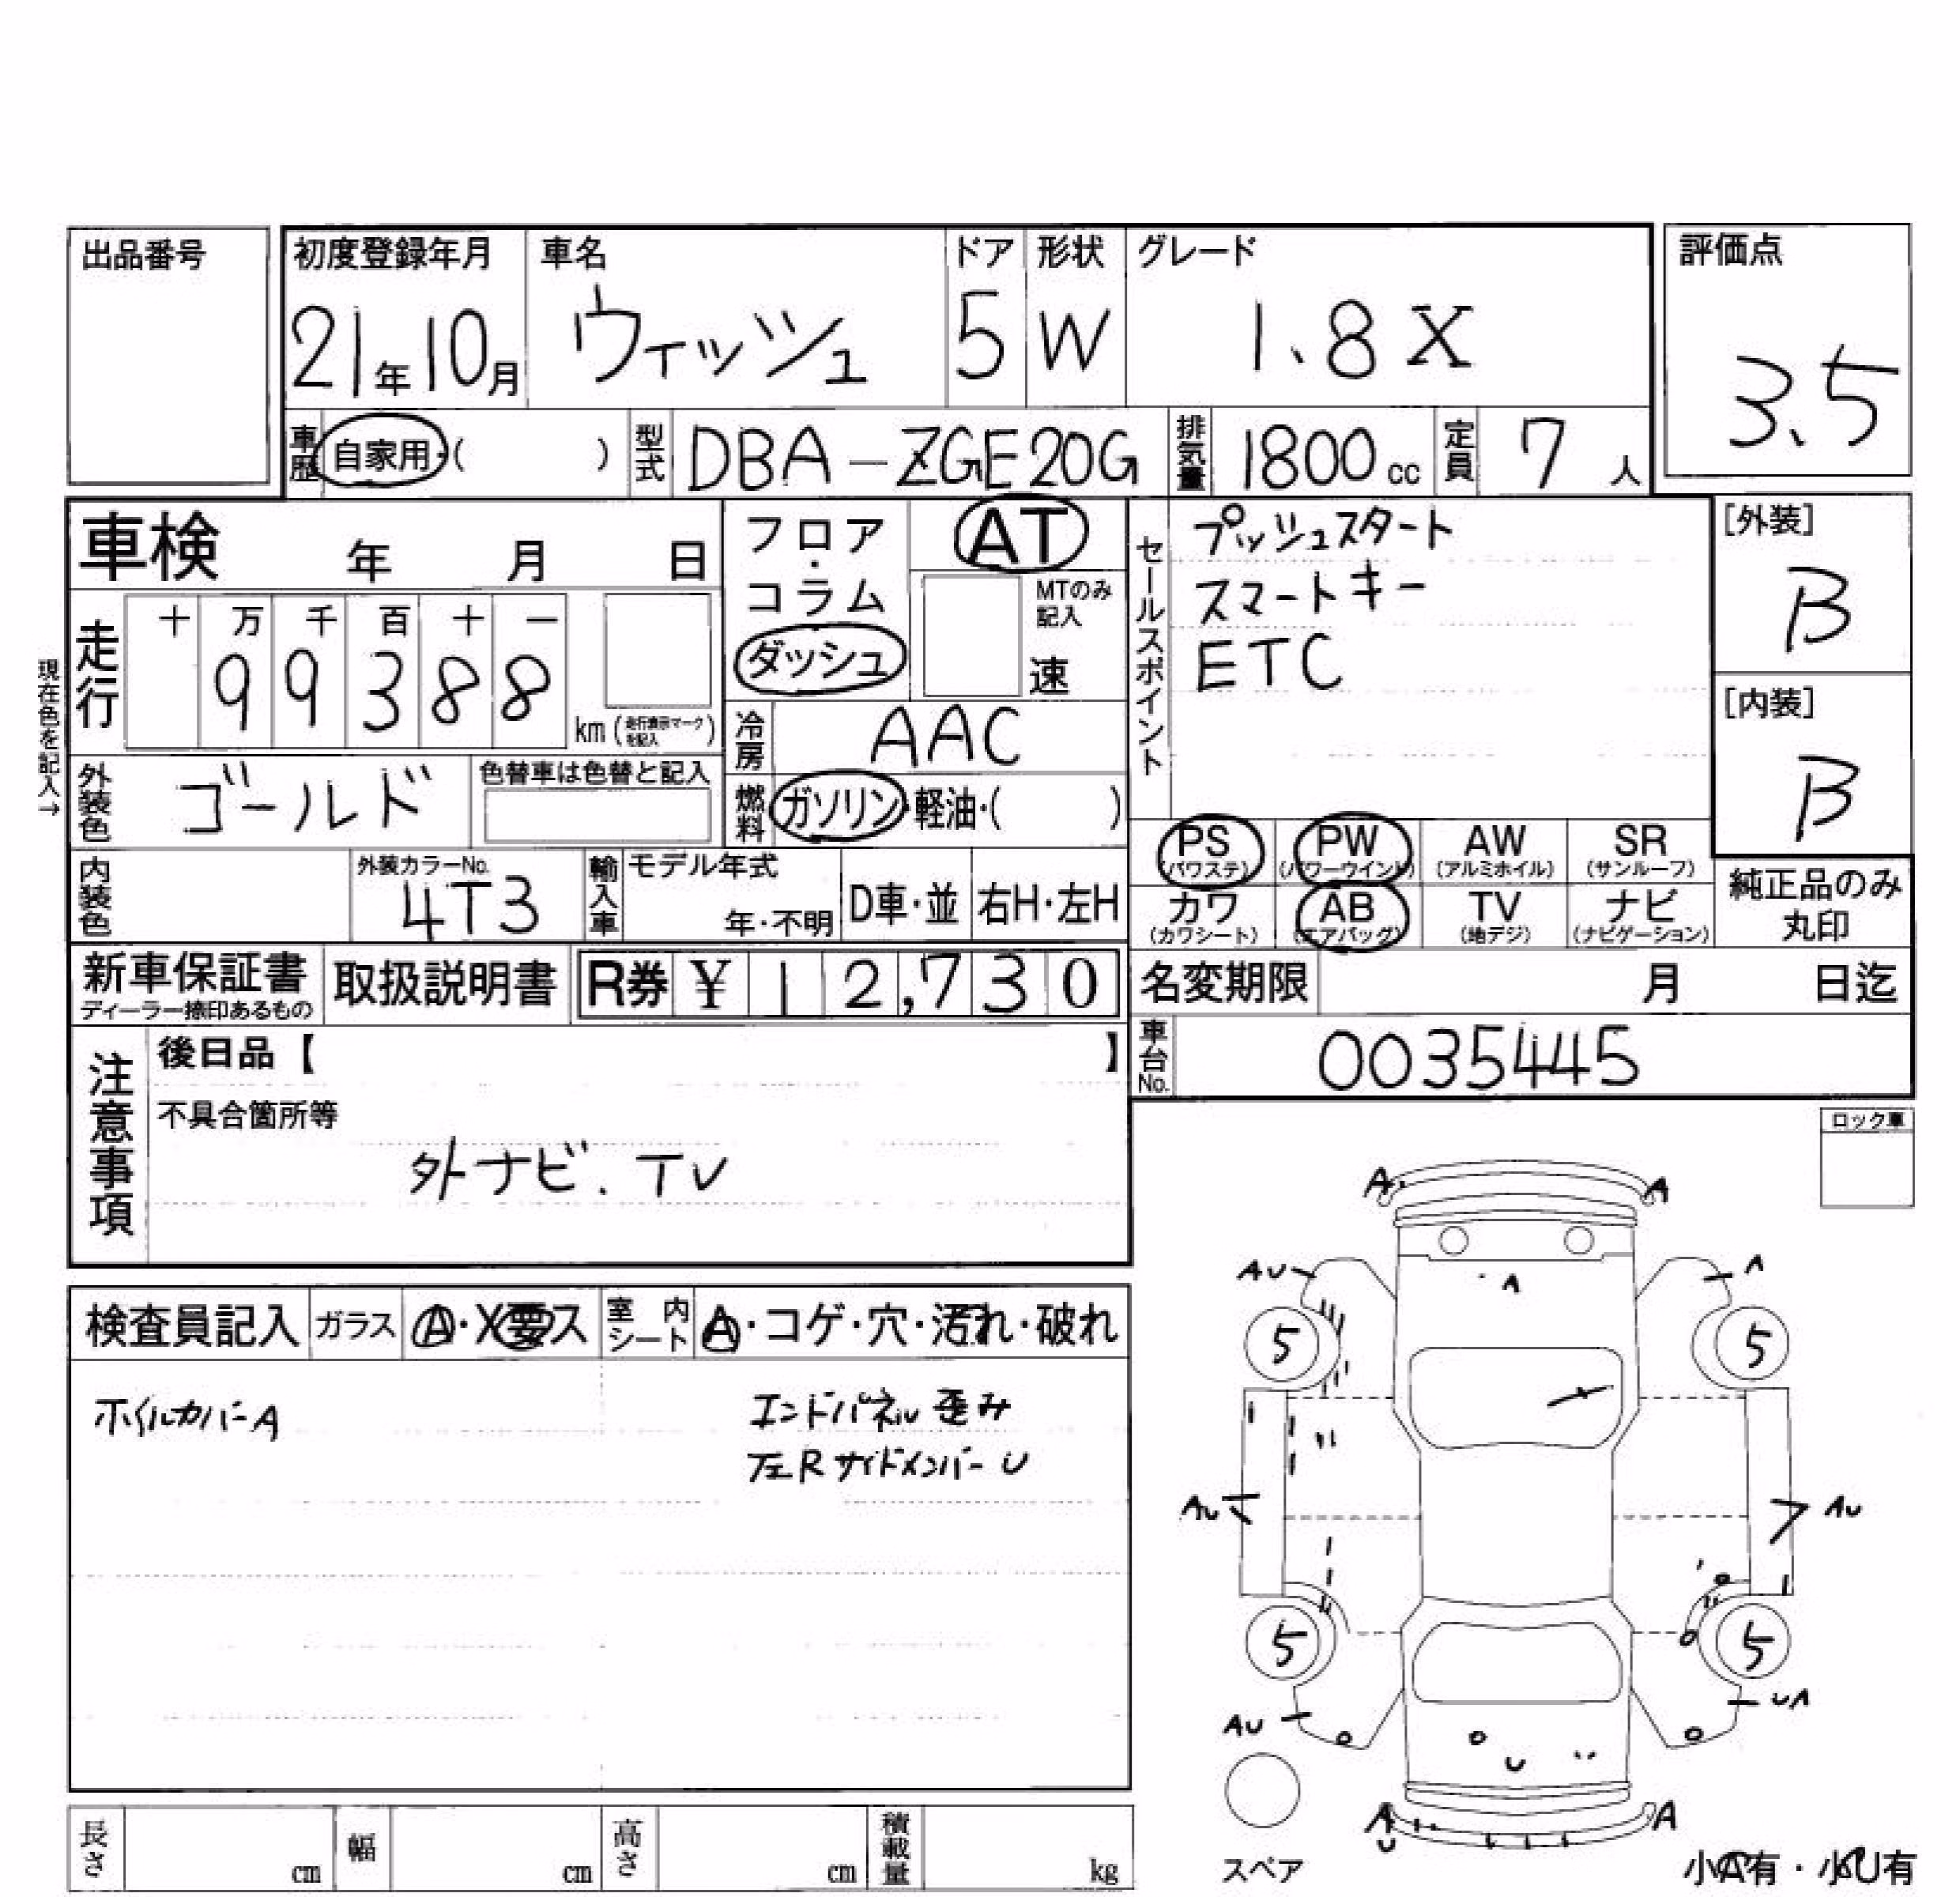 出品番号
初度登録年月 車名 ドア 形状 グレード 評価点
21年10月 ウィッシュ 5 W 1.8 X 3.5
車歴 自家用・( ) 型式 DBA-ZGE20G 排気量 1800cc 定員 7人
車検 年 月 日
フロア・コラム ダッシュ
AT
MTのみ記入
速
セールスポイント
プッシュスタート
スマートキー
ETC
[外装]
B
[内装]
B
現在色を記入→
走行 十 万 千 百 十 一
99388 km (走行表示マークを記入)
冷房 AAC
外装色 ゴールド 色替車は色替と記入
燃料 ガソリン・軽油・( )
PS (パワステ) PW (パワーウインド) AW (アルミホイル) SR (サンルーフ)
カワ (カワシート) AB (エアバッグ) TV (地デジ) ナビ (ナビゲーション)
純正品のみ
丸印
内装色 外装カラーNo. 4T3 輸入車 モデル年式 年・不明 D車・並 右H・左H
新車保証書 ディーラー捺印あるもの 取扱説明書 R券 ¥12,730
名変期限 月 日迄
車台No. 0035445
注意事項
後日品【 】
不具合箇所等
外ナビ.TV
ロック車
検査員記入 ガラス A・X要ス 室内シート A・コゲ・穴・汚れ・破れ
ホイルカバーA
エンドパネル歪み
左Rサイドメンバー U
A A
AU A
A
5 5
AU AU
5 5
AU UA
U
A U A
スペア
小A有・小U有
長さ cm 幅 cm 高さ cm 積載量 kg